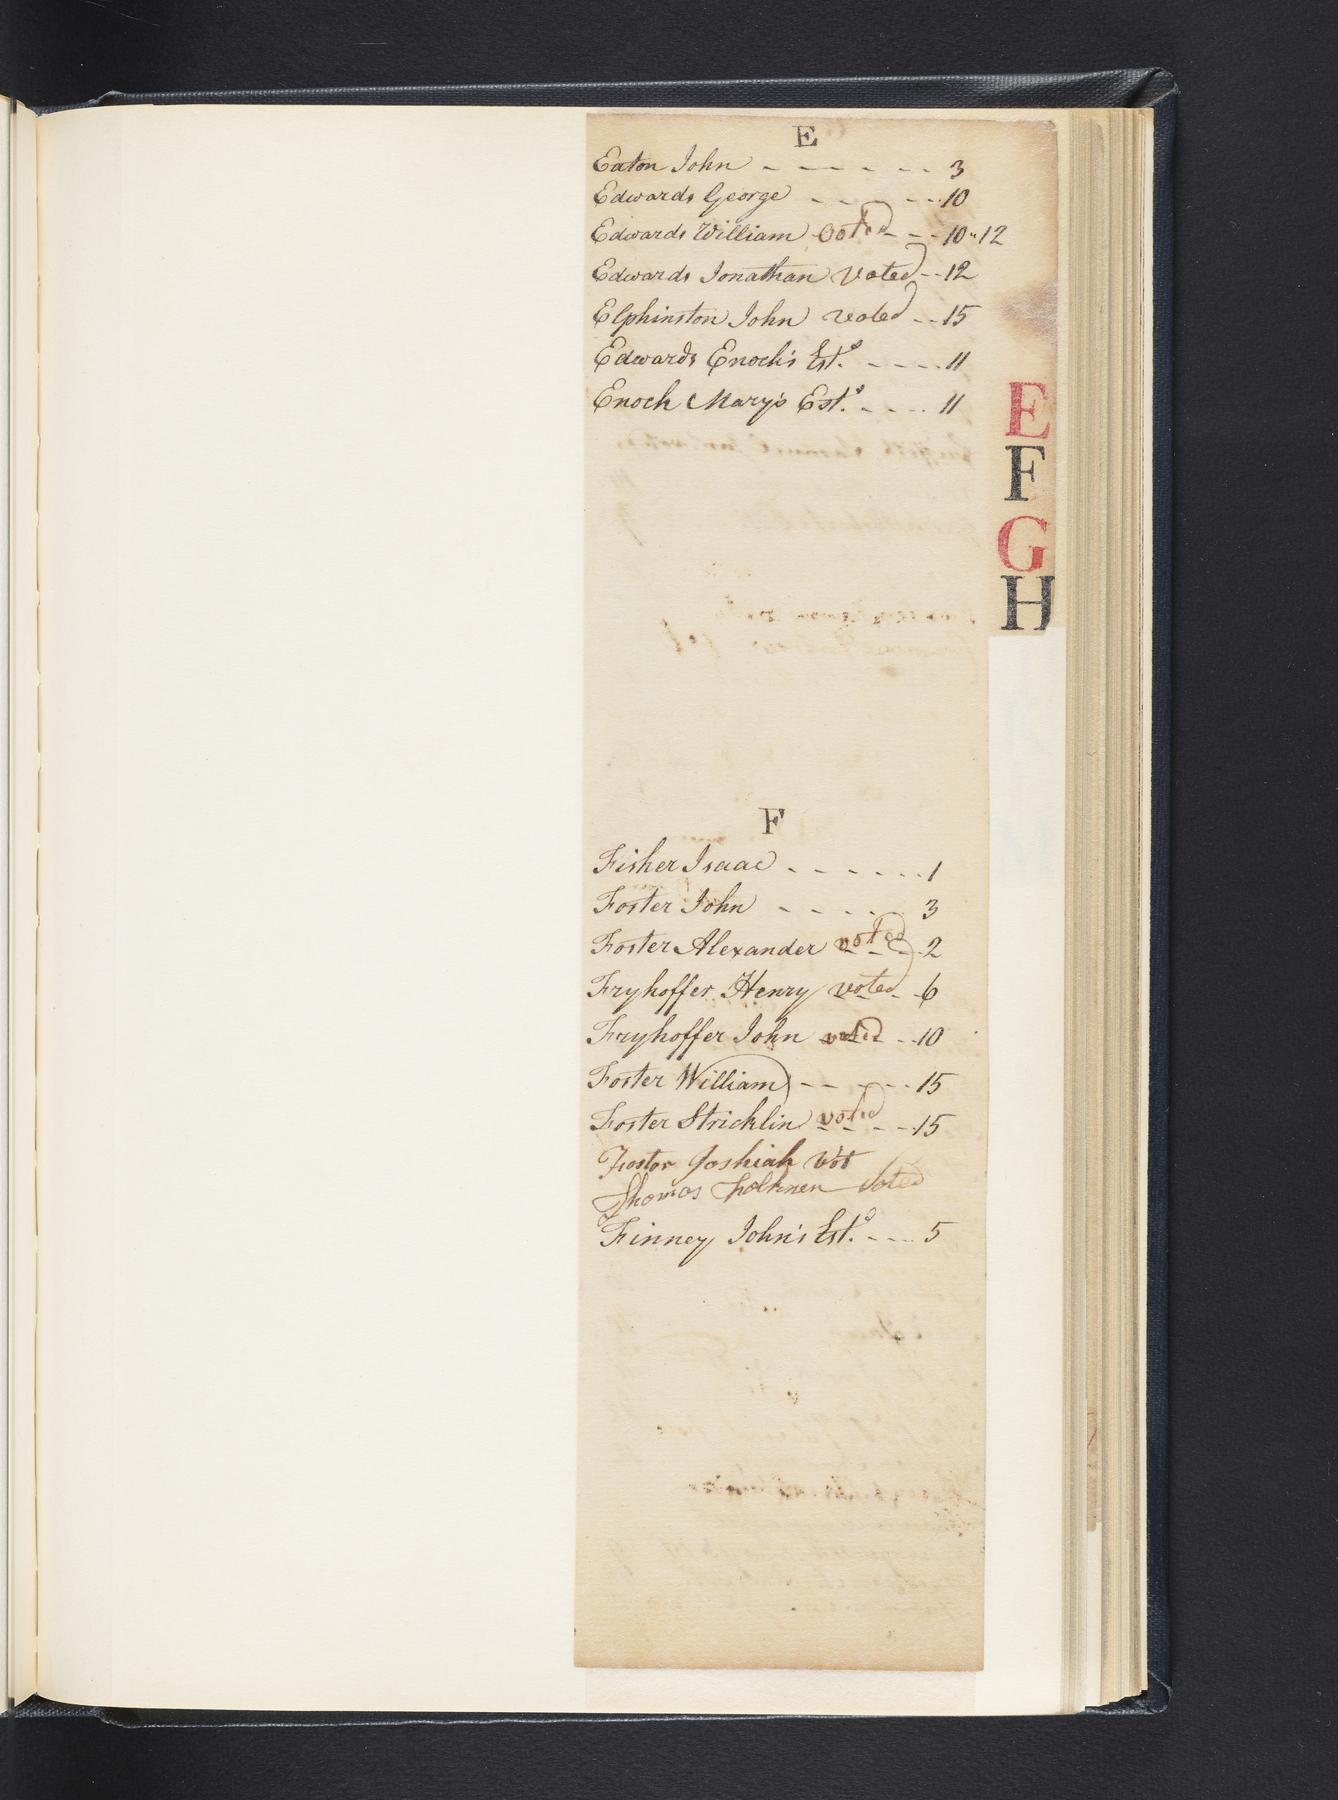 E
Eaton John - - - - - - 3
Edwards George - - - - - 10
Edwards William voted - - 10 " 12
Edwards Jonathan voted - - 12
Elphinston John voted - - 15
Edwards Enoch's Est.e - - - - 11
Enoch Mary's Est.e - - - - 11
E
F
G
H
F
Fisher Isaac - - - - - - 1
Foster John - - - - 3
Foster Alexander voted - - - 2
Fryhoffer Henry voted - - 6
Fryhoffer John voted - - 10
Foster William - - - - - 15
Foster Stricklin voted - - - - 15
Foster Joshiah Vot
Thomas voted
Finney John's Est.e - - - - 5